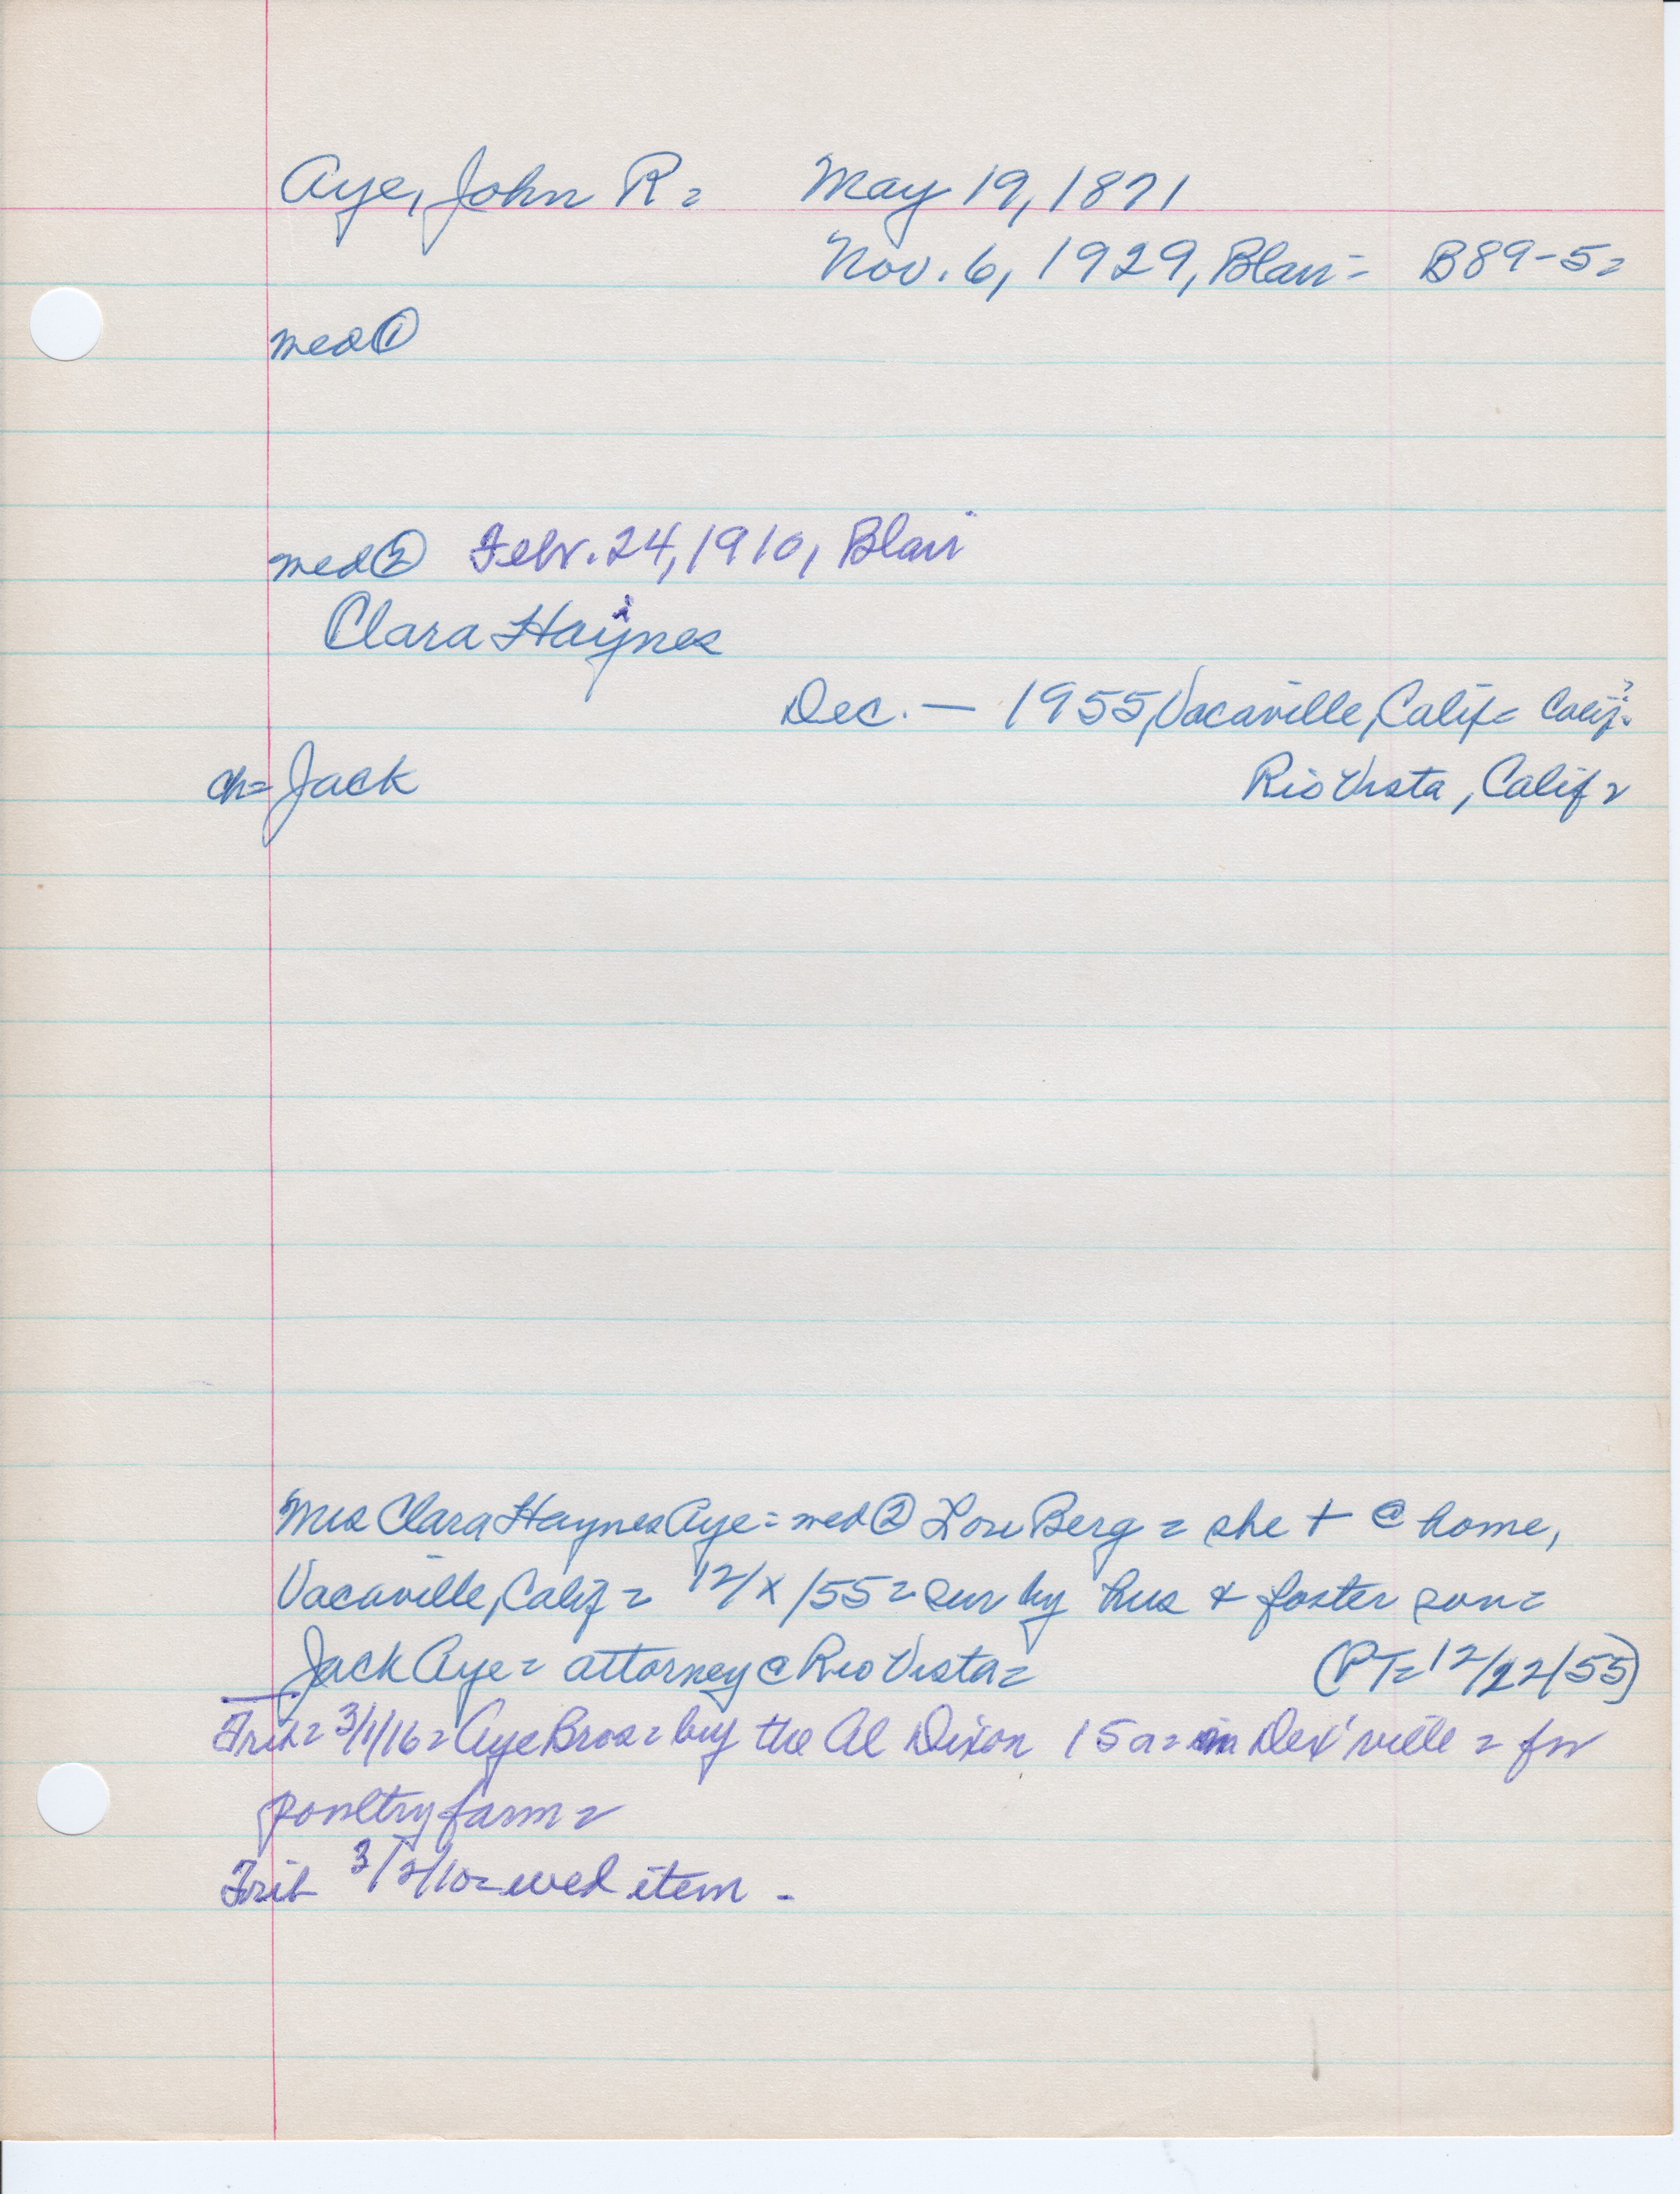 Aye, John R = May 19, 1871
Nov. 6, 1929, Blair = B89-5=
med ①
med ② Febr. 24, 1910, Blair
Clara Haynes
Dec. — 1955, Vacaville, Calif = Calif. ?
ch = Jack Rio Vista, Calif =
Mrs Clara Haynes Aye = med ② Lou Berg = she + @ home,
Vacaville, Calif = 12/x/55 = sur by hus & foster son =
Jack Aye = attorney @ Rio Vista = (PT = 12/22/55)
Trib = 3/1/16 = Aye Bros = buy the Al Dixon 15 a = in Dex'ville = for
poultry farm =
Trib 3/2/10 = wed item -